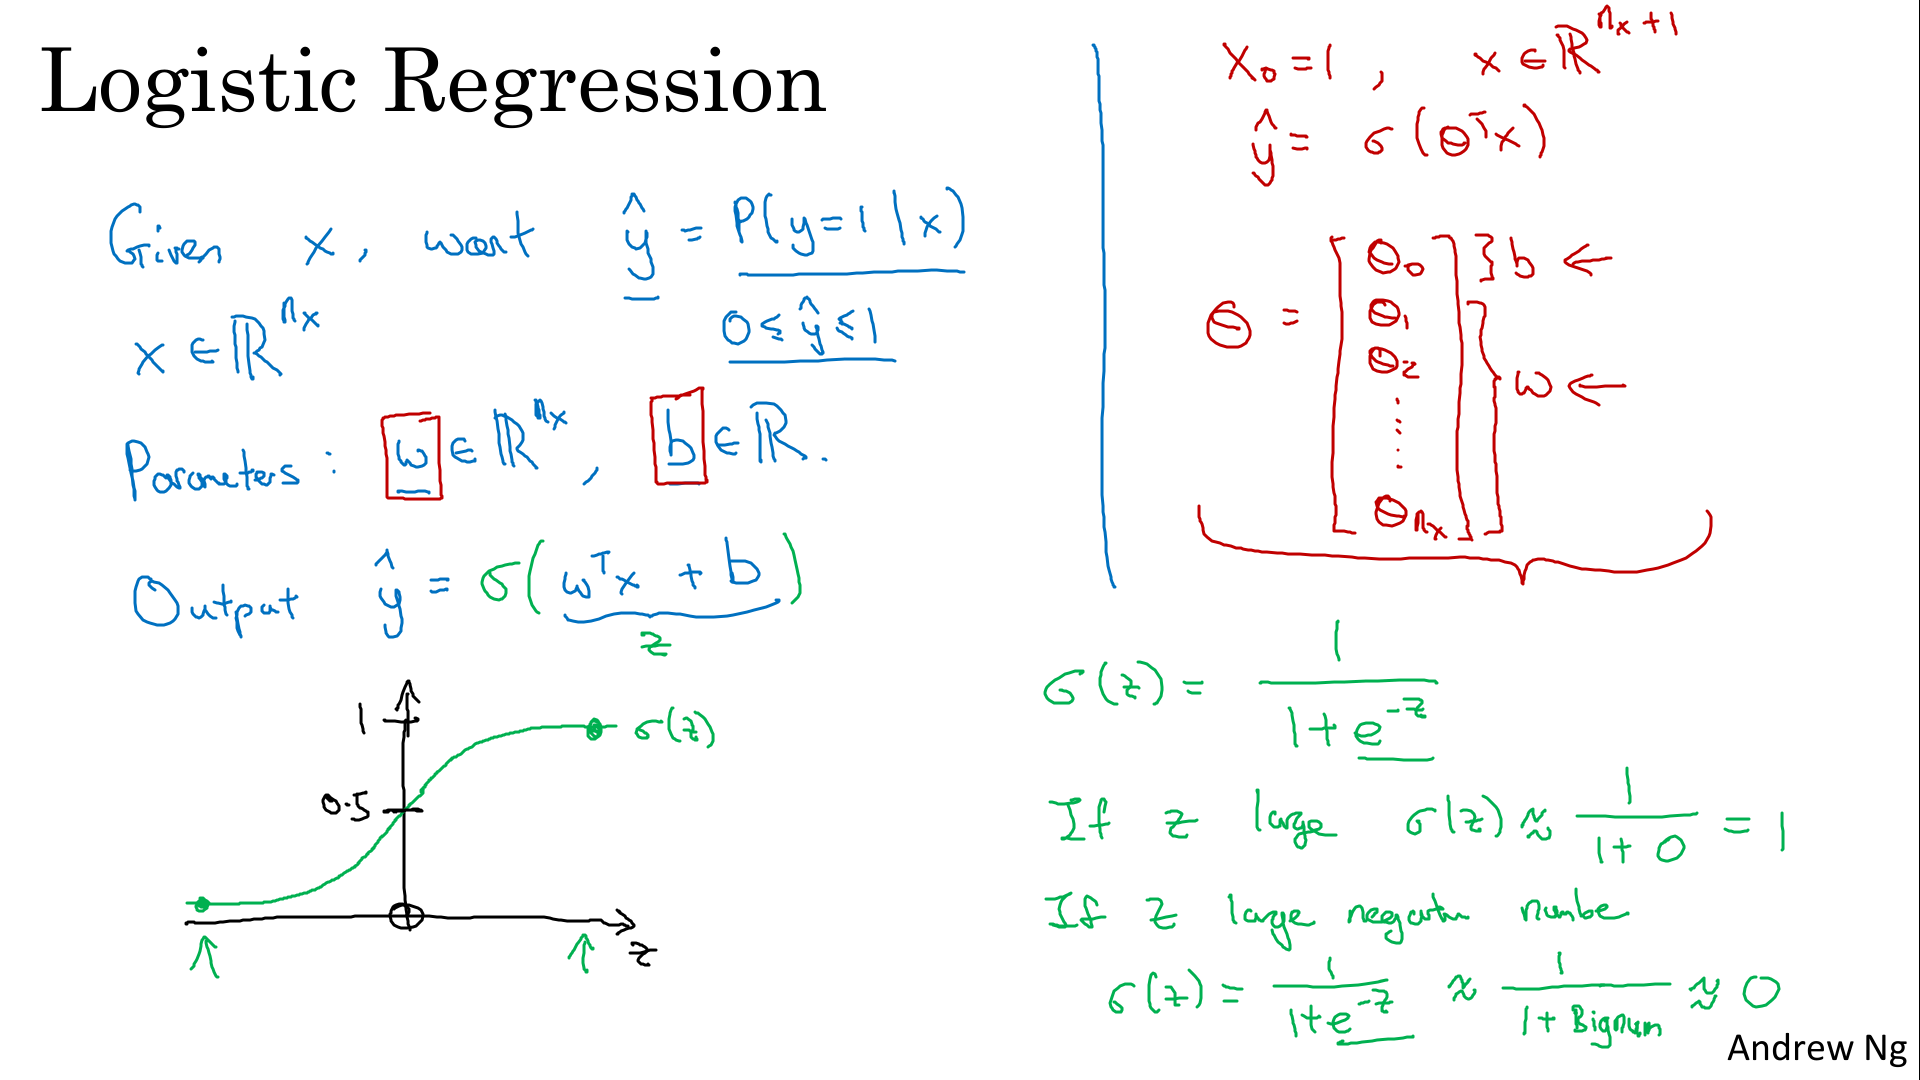 Logistic Regression
Given x, want ŷ = P(y=1|x)
0 ≤ ŷ ≤ 1
x ∈ ℝ^{n_x}
Parameters : w ∈ ℝ^{n_x}, b ∈ ℝ.
Output ŷ = σ(w^T x + b)
z
1
σ(z)
0.5
z
x_0 = 1, x ∈ ℝ^{n_x+1}
ŷ = σ(θ^T x)
θ = [θ_0 θ_1 θ_2 ⋮ θ_{n_x}]
} b ←
} w ←
σ(z) = 1/(1+e^{-z})
If z large σ(z) ≈ 1/(1+0) = 1
If z large negative number
σ(z) = 1/(1+e^{-z}) ≈ 1/(1+Bignum) ≈ 0
Andrew Ng